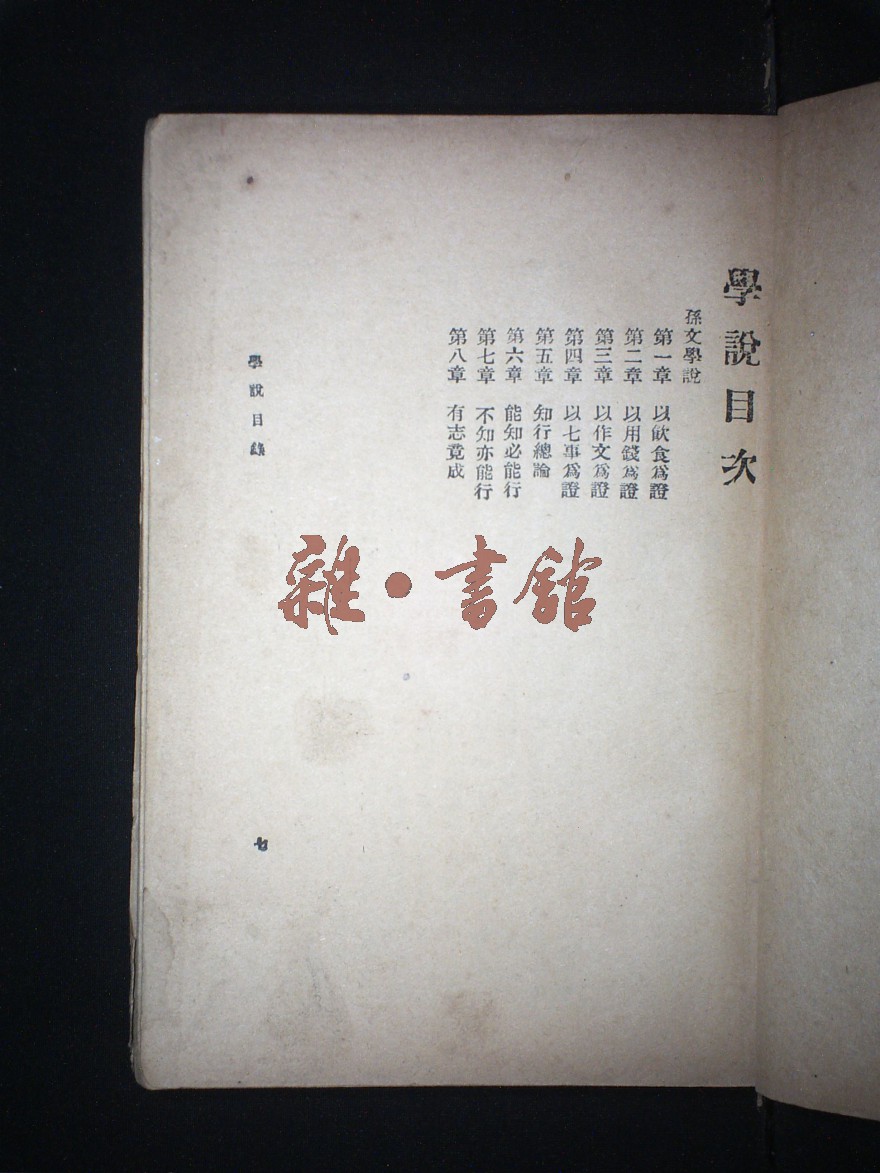 學說目次
孫文學說
第一章 以飲食爲證
第二章 以用錢爲證
第三章 以作文爲證
第四章 以七事爲證
第五章 知行總論
第六章 能知必能行
第七章 不知亦能行
第八章 有志竟成
學說目錄
七
雜·書館